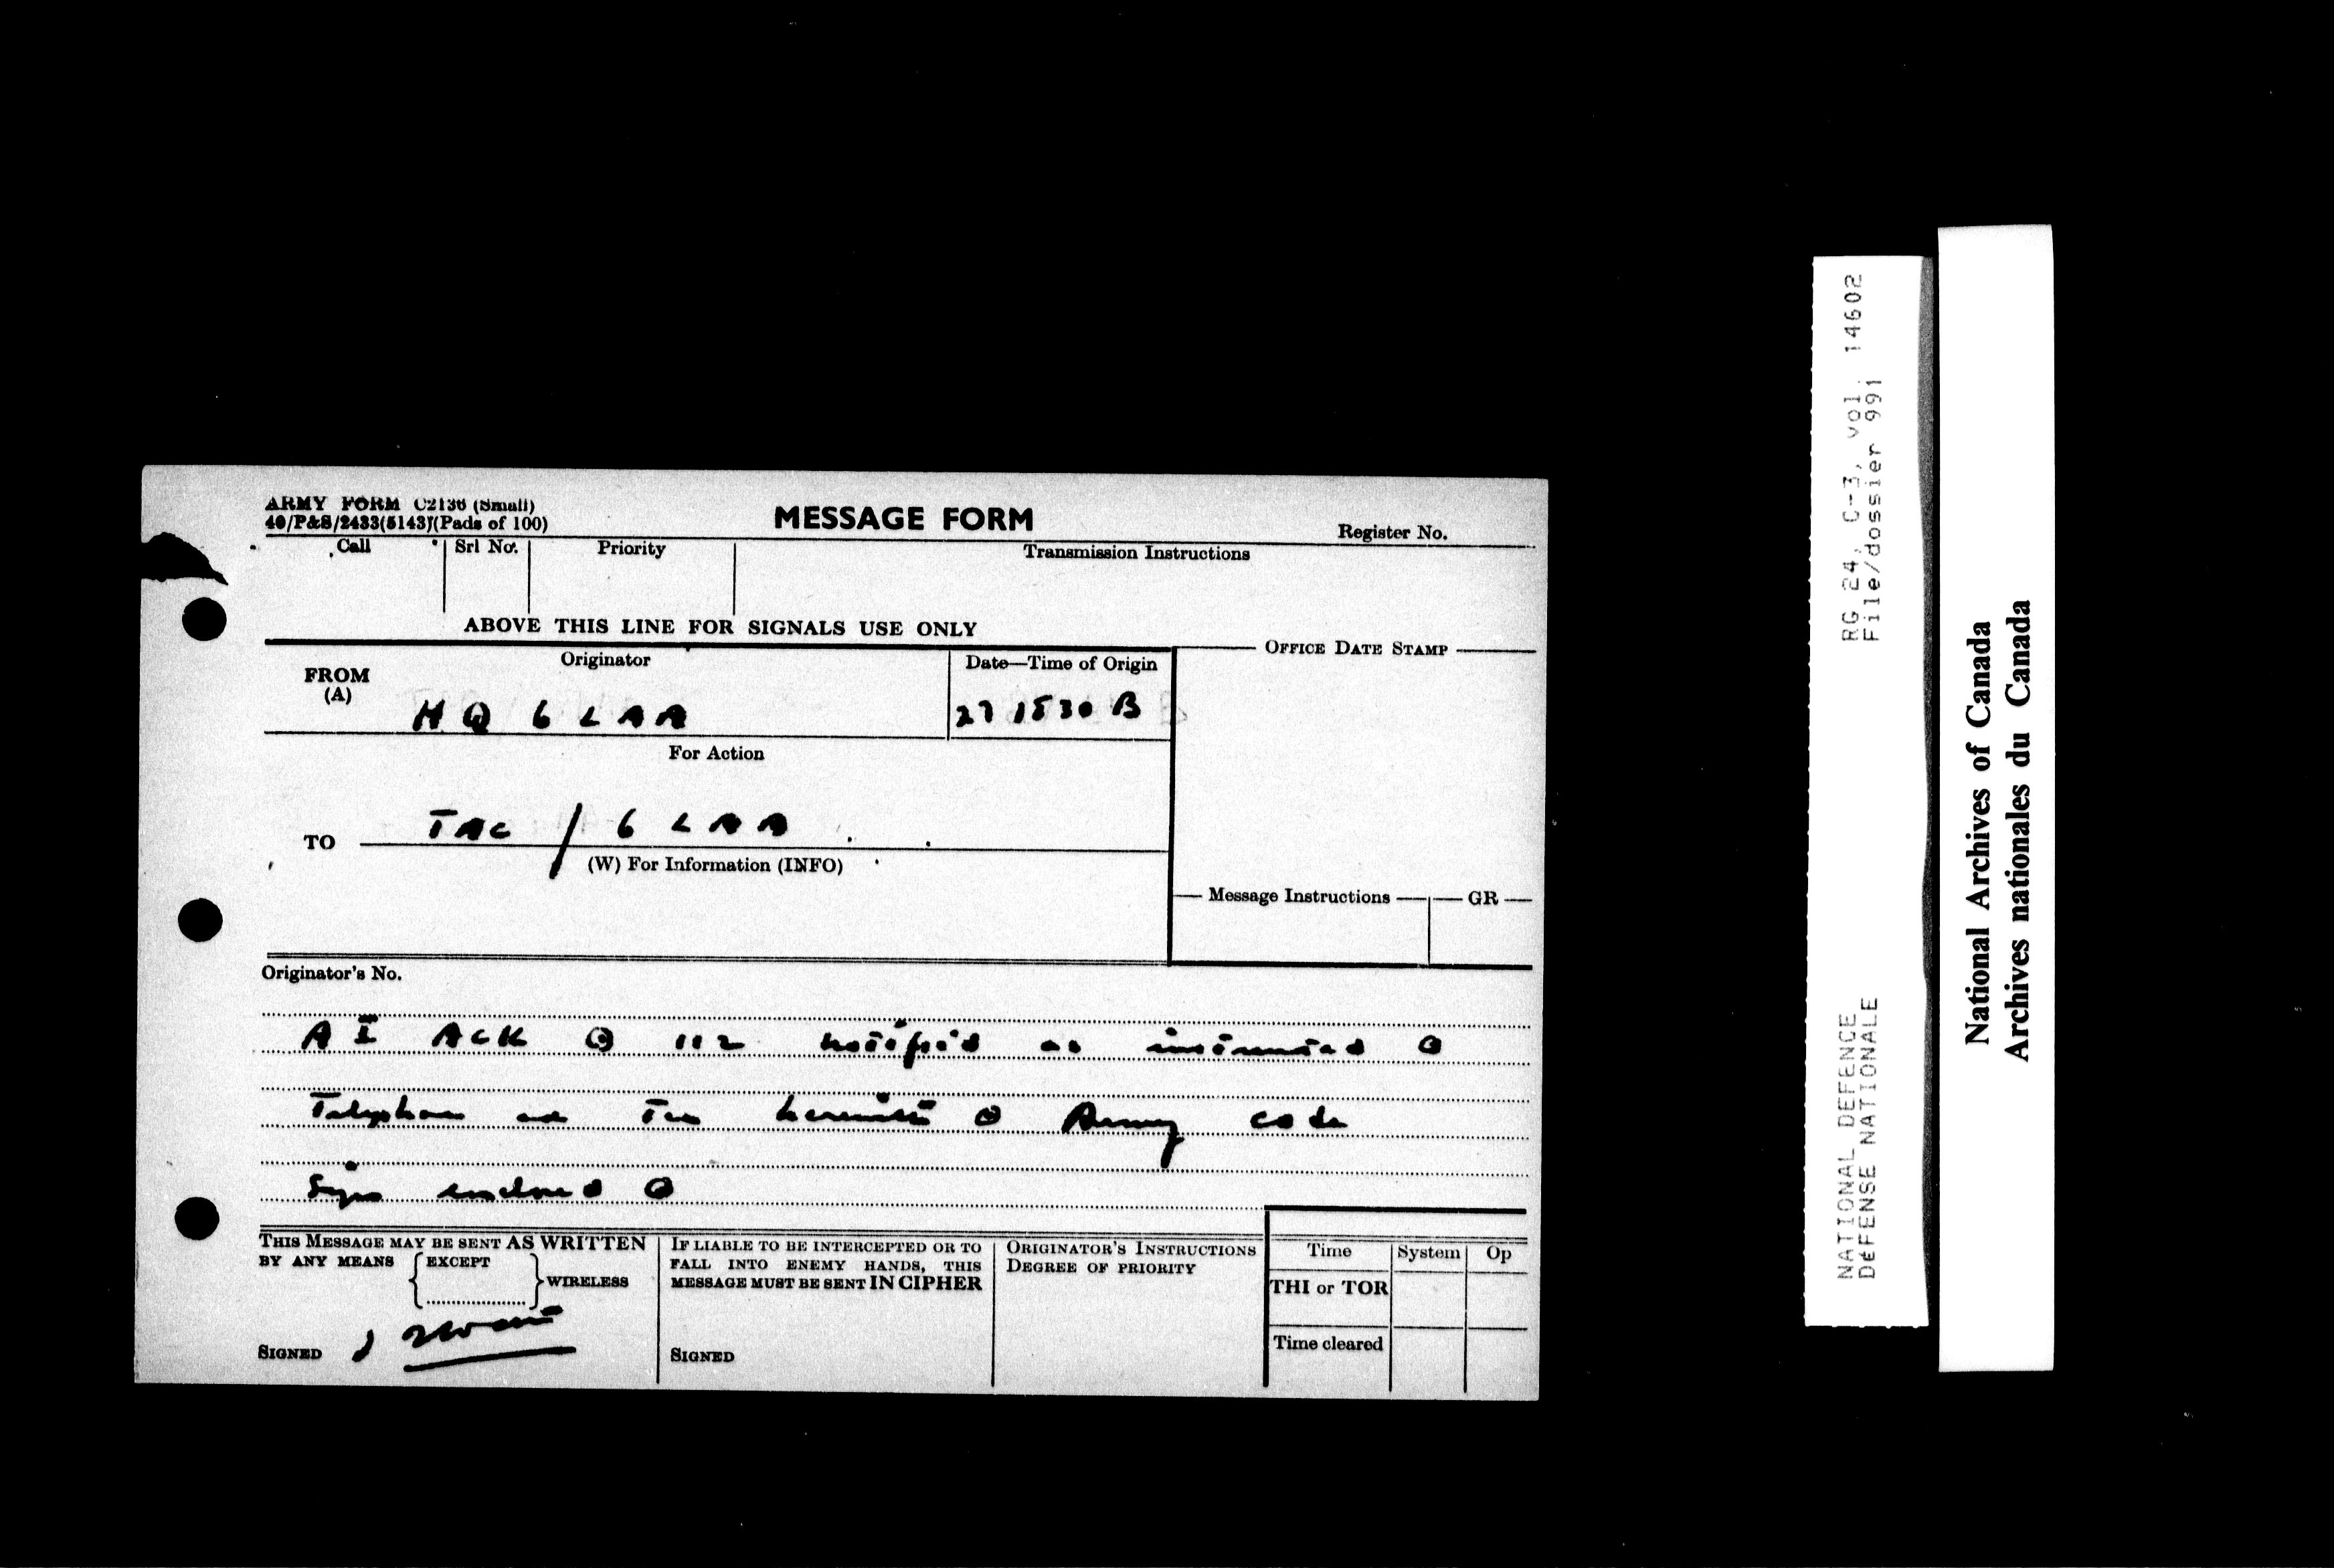 ARMY FORM C2136 (Small)
40/P&S/2433(5143)(Pads of 100)
MESSAGE FORM
Register No.
Call
Srl No.
Priority
Transmission Instructions
ABOVE THIS LINE FOR SIGNALS USE ONLY
FROM
(A)
Originator
Date—Time of Origin
OFFICE DATE STAMP
HQ 6 LAA
27 1530 B
For Action
TO
TAC / 6 LAA
(W) For Information (INFO)
Message Instructions
GR
Originator's No.
A I ACK 112 notified as instructed
Telephone and Army code
Signs enclosed
THIS MESSAGE MAY BE SENT AS WRITTEN
BY ANY MEANS
EXCEPT
WIRELESS
SIGNED
IF LIABLE TO BE INTERCEPTED OR TO
FALL INTO ENEMY HANDS, THIS
MESSAGE MUST BE SENT IN CIPHER
SIGNED
ORIGINATOR'S INSTRUCTIONS
DEGREE OF PRIORITY
Time
System
Op
THI or TOR
Time cleared
RG 24, C-3, vol. 14602
File/dossier 991
NATIONAL DEFENCE
DéFENSE NATIONALE
National Archives of Canada
Archives nationales du Canada